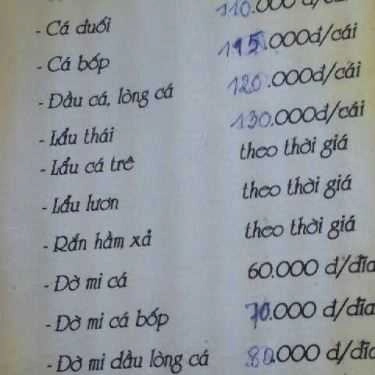 - Cá duối 110.000 đ/cái
- Cá bốp 195.000đ/cái
- Đầu cá, lòng cá 120.000đ/cái
- Lẩu thái 130.000đ/cái
- Lẩu cá trê theo thời giá
- Lẩu lươn theo thời giá
- Rắn hầm xả theo thời giá
- Đờ mi cá 60.000 đ/đĩa
- Đờ mi cá bốp 70.000 đ/đĩa
- Đờ mi đầu lòng cá 80.000 đ/đĩa